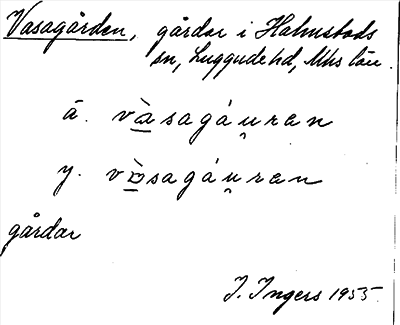 Vasagården, gårdar i Halmstads
sn, Luggude hd, Mhs län.
ä. và̲sagáu̯ran
y. vɒ̲̀sagáu̯ran
gårdar
I. Ingers 1955.